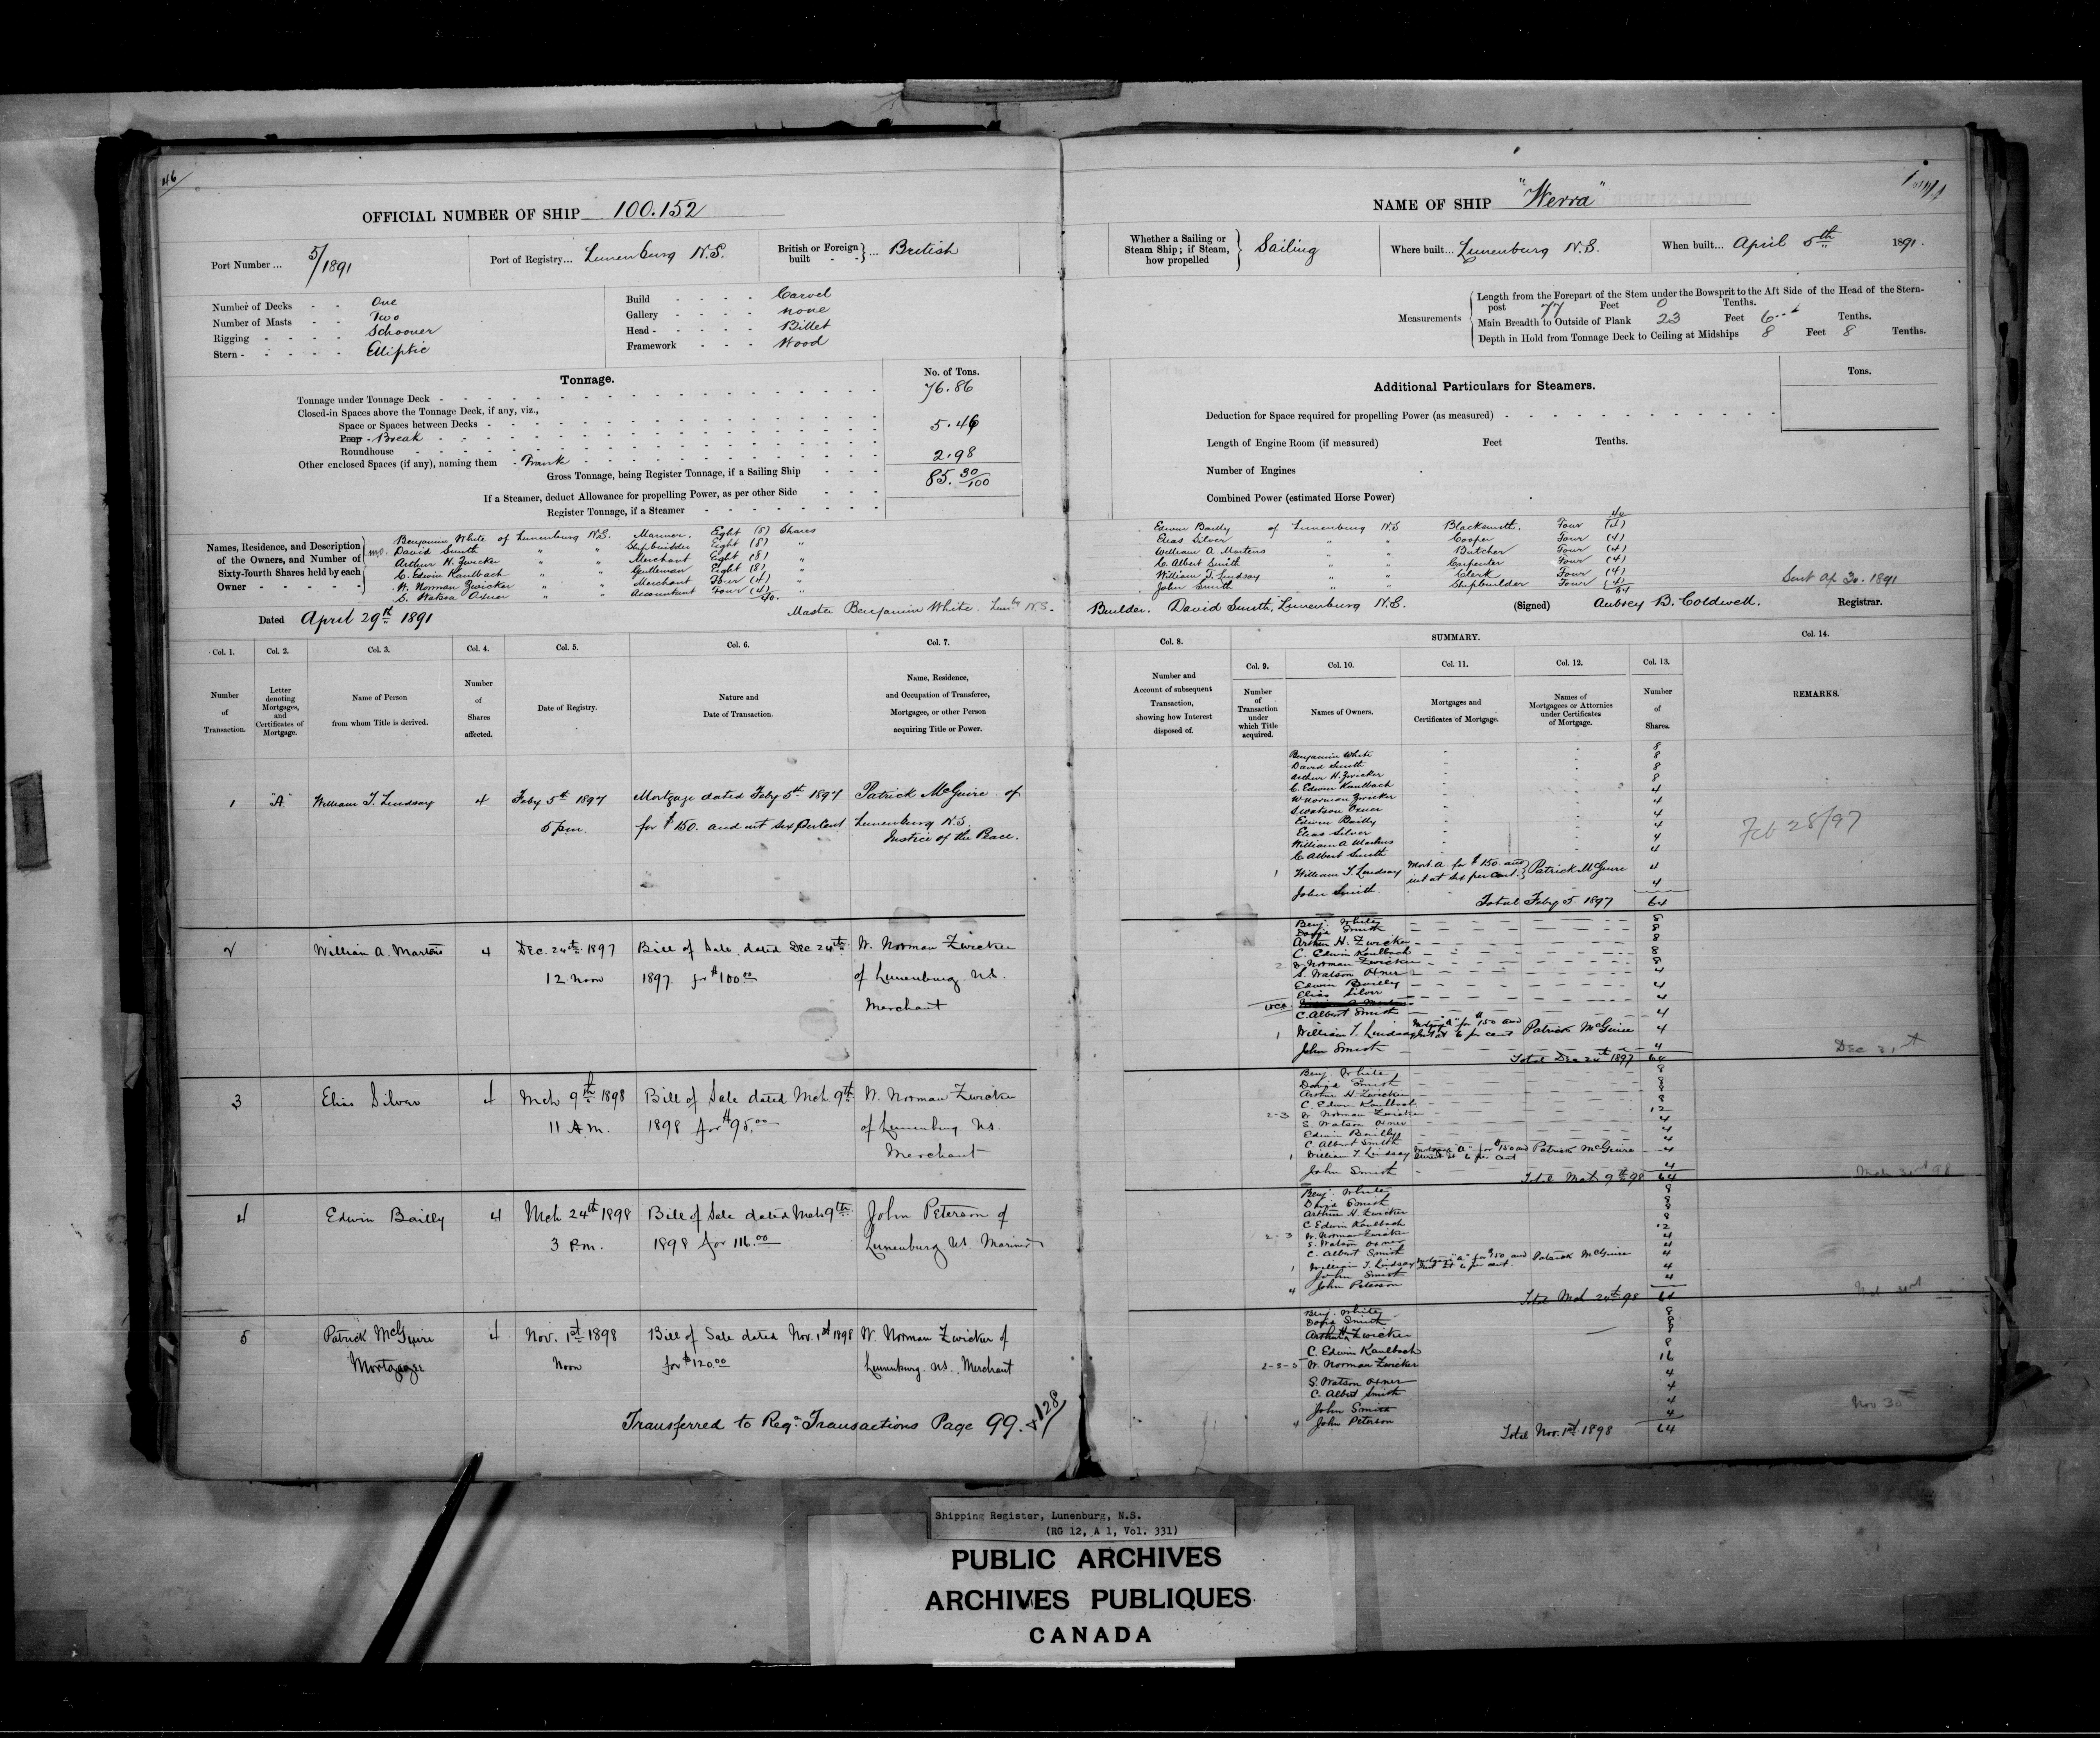 46
OFFICIAL NUMBER OF SHIP 100.152
Port Number ... 5/1891
Port of Registry... Lunenburg N.S.
British or Foreign built - - } ... British
Number of Decks - - One
Number of Masts - - Two
Rigging - - - - Schooner
Stern - - - - - Elliptic
Build - - - - Carvel
Gallery - - - - none
Head - - - - - Billet
Framework - - - Wood
Tonnage.
No. of Tons.
Tonnage under Tonnage Deck - 76.86
Closed-in Spaces above the Tonnage Deck, if any, viz.,
Space or Spaces between Decks -
Poop - Break - 5.46
Roundhouse
Other enclosed Spaces (if any), naming them - Trunk - 2.98
Gross Tonnage, being Register Tonnage, if a Sailing Ship - - - 85.30/100
If a Steamer, deduct Allowance for propelling Power, as per other Side - - -
Register Tonnage, if a Steamer
Names, Residence, and Description of the Owners, and Number of Sixty-fourth Shares held by each Owner
Benjamin White of Lunenburg N.S. Mariner. Eight (8) Shares
David Smith " " Shipbuilder Eight (8) "
Arthur H. Zwicker " " Merchant Eight (8) "
C. Edwin Kaulbach " " Gentleman Eight (8) "
W. Norman Zwicker " " Merchant Four (4) "
S. Watson Oxner " " Accountant Four (4) "
40.
Dated April 29th 1891
Master Benjamin White. N.S.
Col. 1. Col. 2. Col. 3. Col. 4. Col. 5. Col. 6. Col. 7.
Number of Transaction.
Letter denoting Mortgages, and Certificates of Mortgage.
Name of Person from whom Title is derived.
Number of Shares affected.
Date of Registry.
Nature and Date of Transaction.
Name, Residence, and Occupation of Transferee, Mortgagee, or other Person acquiring Title or Power.
1 "A" William T. Lindsay 4 Feby 5th 1897 Mortgage dated Feby 5th 1897 Patrick McGuire of
5 p.m. for $150. and int six per cent Lunenburg N.S.
Justice of the Peace.
2 William A. Martens 4 Dec. 24th 1897 Bill of Sale dated Dec 24th W. Norman Zwicker
12 Noon 1897 for $100.00 of Lunenburg N.S.
Merchant
3 Elias Silver 4 Mch 9th 1898 Bill of Sale dated Mch. 9th W. Norman Zwicker
11 A.M. 1898 for $95.00 of Lunenburg N.S.
Merchant
4 Edwin Bailly 4 Mch 24th 1898 Bill of Sale dated Mch 9th John Peterson of
3 P.m. 1898 for 116.00 Lunenburg N.S Mariner
5 Patrick McGuire 4 Nov. 1st 1898 Bill of Sale dated Nov. 1st 1898 W. Norman Zwicker of
Mortgagee Noon for $120.00 Lunenburg. N.S. Merchant
Transferred to Reg. Transactions Page 99. & 128/
NAME OF SHIP "Werra"
Whether a Sailing or Steam Ship; if Steam, how propelled } Sailing
Where built... Lunenburg N.S.
When built... April 5th 1891.
Measurements
Length from the Forepart of the Stem under the Bowsprit to the Aft Side of the Head of the Stern-
post 77 Feet 0 Tenths.
Main Breadth to Outside of Plank 23 Feet 6 Tenths.
Depth in Hold from Tonnage Deck to Ceiling at Midships 8 Feet 8 Tenths.
Additional Particulars for Steamers.
Tons.
Deduction for Space required for propelling Power (as measured)
Length of Engine Room (if measured) Feet Tenths.
Number of Engines
Combined Power (estimated Horse Power)
40
Edwin Bailly of Lunenburg N.S Blacksmith. Four (4)
Elias Silver " " Cooper Four (4)
William A Martens " " Butcher Four (4)
C. Albert Smith " " Carpenter Four (4)
William T. Lindsay " " Clerk Four (4)
John Smith " " Shipbuilder Four (4)
64
Sent Ap 30. 1891
Builder. David Smith, Lunenburg N.S. (Signed) Aubrey B. Coldwell. Registrar.
Col. 8. SUMMARY. Col. 14.
Col. 9. Col. 10. Col. 11. Col. 12. Col. 13.
Number and Account of subsequent Transaction, showing how Interest disposed of.
Number of Transaction under which Title acquired.
Names of Owners.
Mortgages and Certificates of Mortgage.
Names of Mortgagees or Attornies under Certificates of Mortgage.
Number of Shares.
REMARKS.
Benjamin White - - 8
David Smith - - 8
Arthur H. Zwicker - - 8
C. Edwin Kaulbach - - 8
W Norman Zwicker - - 4
S. Watson Oxner - - 4
Edwin Bailly - - 4
Elias Silver - - 4
William A Martens - - 4
C. Albert Smith - - 4
1 William T. Lindsay Mort. A. for $150. and int at six per cent. } Patrick McGuire 4
John Smith 4
Total Feby 5. 1897 64
Feb 28/97
Benj. White 8
David Smith 8
Arthur H. Zwicker 8
C. Edwin Kaulbach 8
2 W Norman Zwicker 8
S. Watson Oxner 4
Edwin Bailly 4
Elias Silver 4
C. Albert Smith 4
1 William T. Lindsay Mortgage "A" for $150 and Int at 6 per cent Patrick McGuire 4
John Smith 4
Total Dec 24th 1897 64
Dec 31st
Benj. White 8
David Smith 8
Arthur H. Zwicker 8
C. Edwin Kaulbach 8
2-3 W Norman Zwicker 12
S. Watson Oxner 4
Edwin Bailly 4
C Albert Smith 4
1 William T. Lindsay Mortgage "A" for $150 and Interest at 6 per cent Patrick McGuire 4
John Smith 4
Total Mch 9th 98 64
Mch 31st 98
Benj. White 8
David Smith 8
Arthur H. Zwicker 8
C Edwin Kaulbach 8
2-3 W. Norman Zwicker 12
S. Watson Oxner 4
C. Albert Smith 4
1 William T. Lindsay Mortgage "A" for $150 and Int at 6 per cent. Patrick McGuire 4
John Smith 4
4 John Peterson
Total Mch 24th 98 64
Benj. White 8
David Smith 8
Arthur H. Zwicker 8
C. Edwin Kaulbach 8
2-3-5 W. Norman Zwicker 16
S. Watson Oxner 4
C. Albert Smith 4
John Smith 4
4 John Peterson 4
Total Nov. 1st 1898 64
Nov 30th
Shipping Register, Lunenburg, N.S.
(RG 12, A 1, Vol. 331)
PUBLIC ARCHIVES
ARCHIVES PUBLIQUES
CANADA